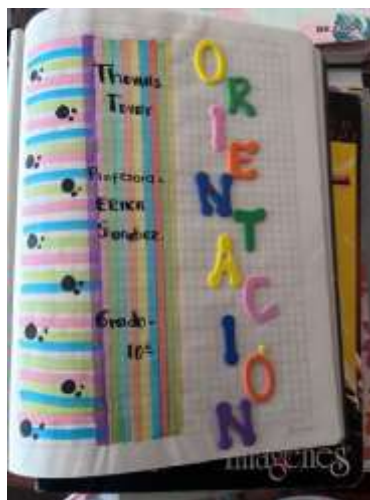 Thomas
Tovar
Profesora-
ERIKA
Sanchez
Grado-
10°
ORIENTACIÓN
Imagenes